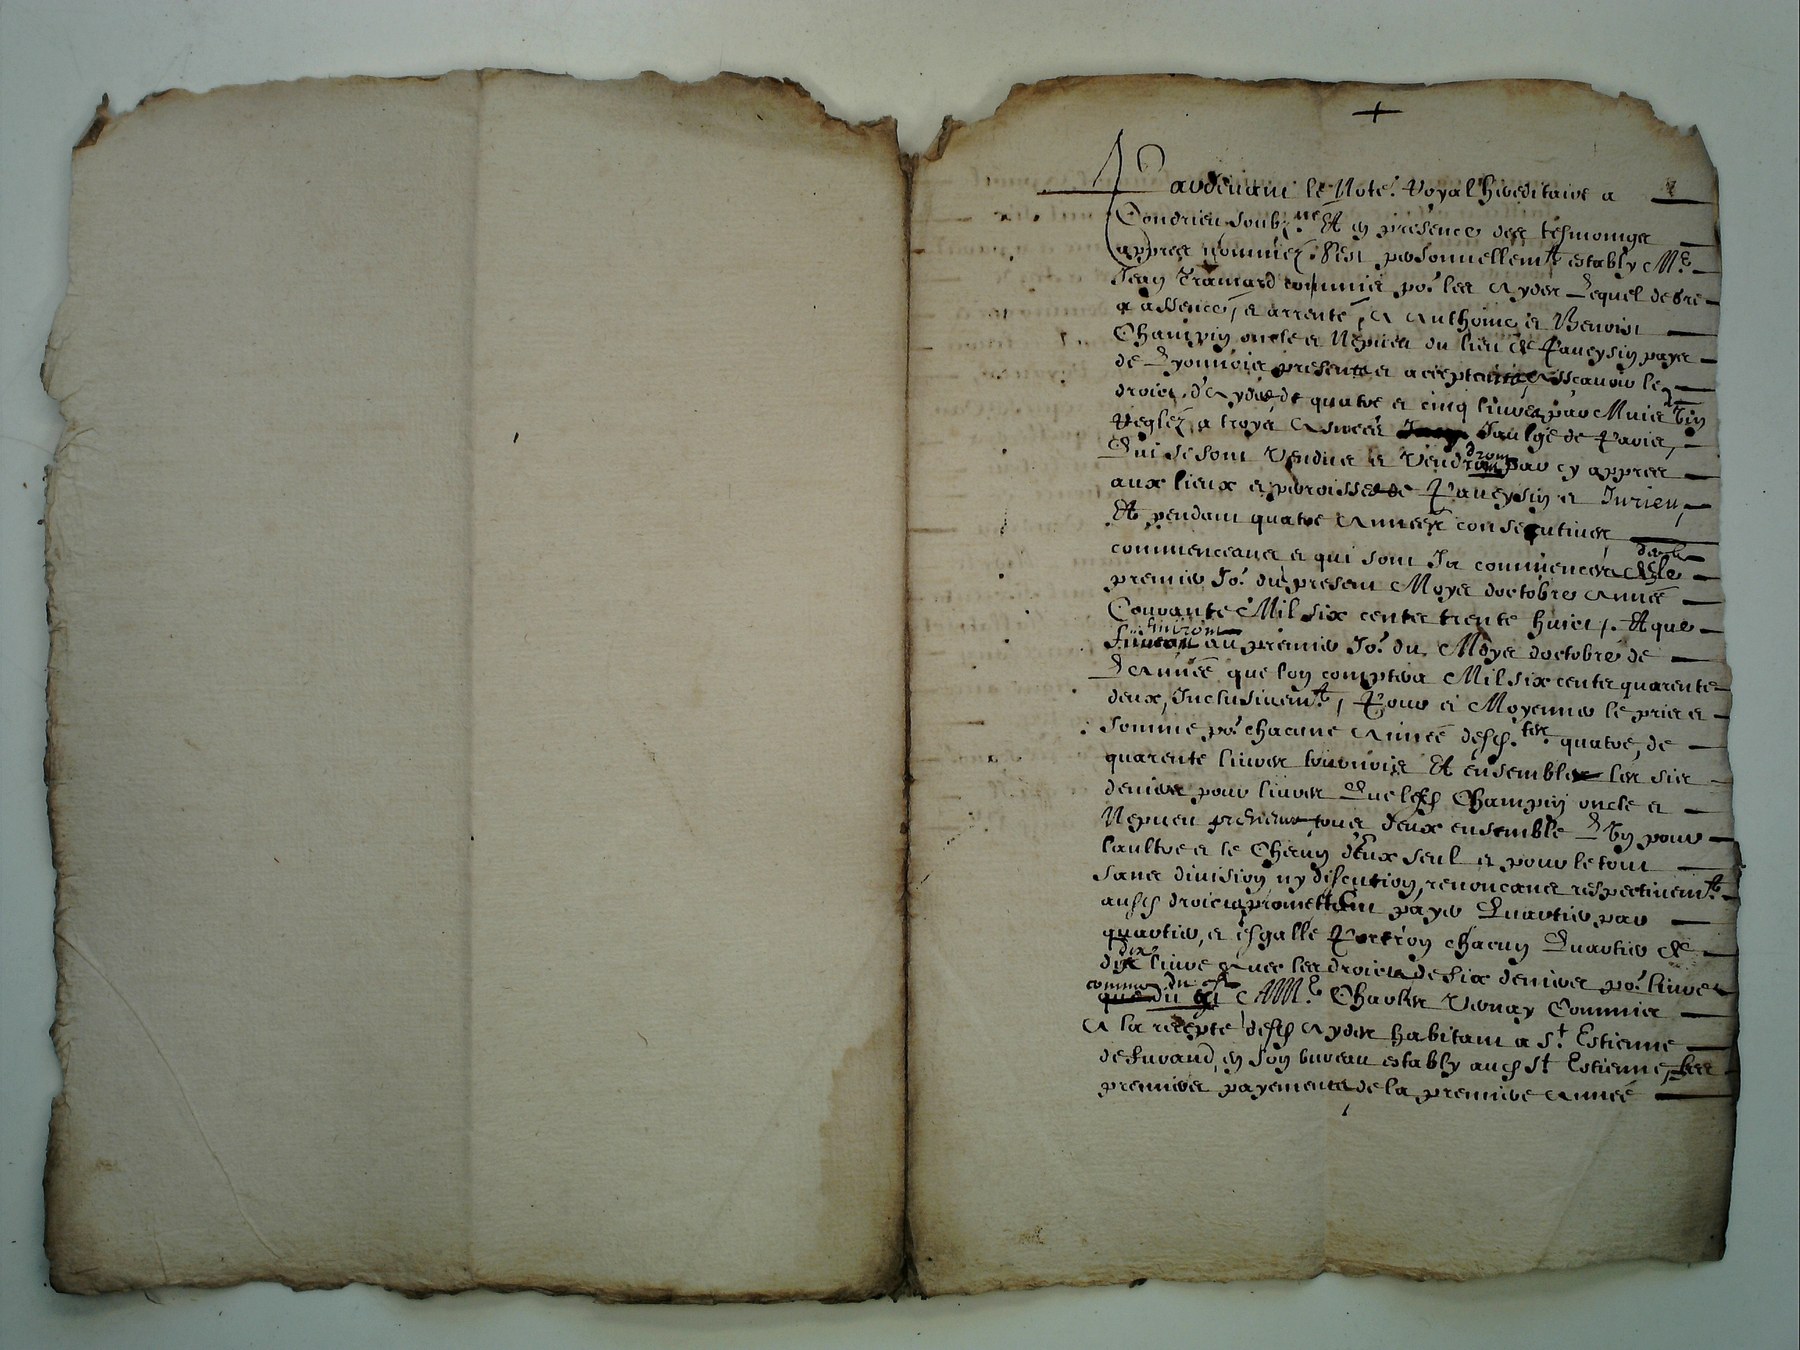 +
Pardeuant le Note.^r Royal hereditaire a
Condrieu soubz.^ne Et en presence des tesmoings
appres nommez. S'est personnellem^t estably M^e.
Jean commis po.^r les Aydes Lequel de gre
a assencé, et arrenté, A Anthoine et Benoist
Champin oncle et Nepueu du lieu de Paueysin pays
de Lyonnois presents et acceptents, Asscauoir le
droict d'Aydes de quatre et cinq liures par Muict de Vin
Reglez a troys Asnees Jaulge de Paris,
Qui se sont Vendues et Vendront par cy appres
aux lieux et parroisses de Paueysin et Jurieu,
Et pendant quatre Années consecutiues
commenceans et qui sont Ja commencées dez le
premier Jo.^r du present Moys doctobre Année
Courante Mil six cents trente huict. Et que
finiront au premier Jo.^r du Moys doctobre de
L'Année que lon comptera Mil six cents quarente
deux, Inclusiuem.^t, Pour et Moyennant le pris et
somme po.^r chacune Année desd. quatre, de
quarente liures tournois Et ensemble les six
deniers pour liures Que lesd Champin oncle et
Nepueu tous deux ensemble L'Vn pour
laultre et le Chacun d'Eux seul et pour le tout
sans diuision ny discution, renonceans respectiuem.^t
ausd droicts promettent payer Quartier par
quartier, et esgalle Portion chacun Quartier de
dix liures Auec les droicts de six deniers po.^r liures
comme du A M.^e Charles Vernay Commis
A la recepte desd Aydes habitant a S.^t Estienne
de furand, en son bureau estably aud S^t Estienne, les
premiers payements de la premiere Année